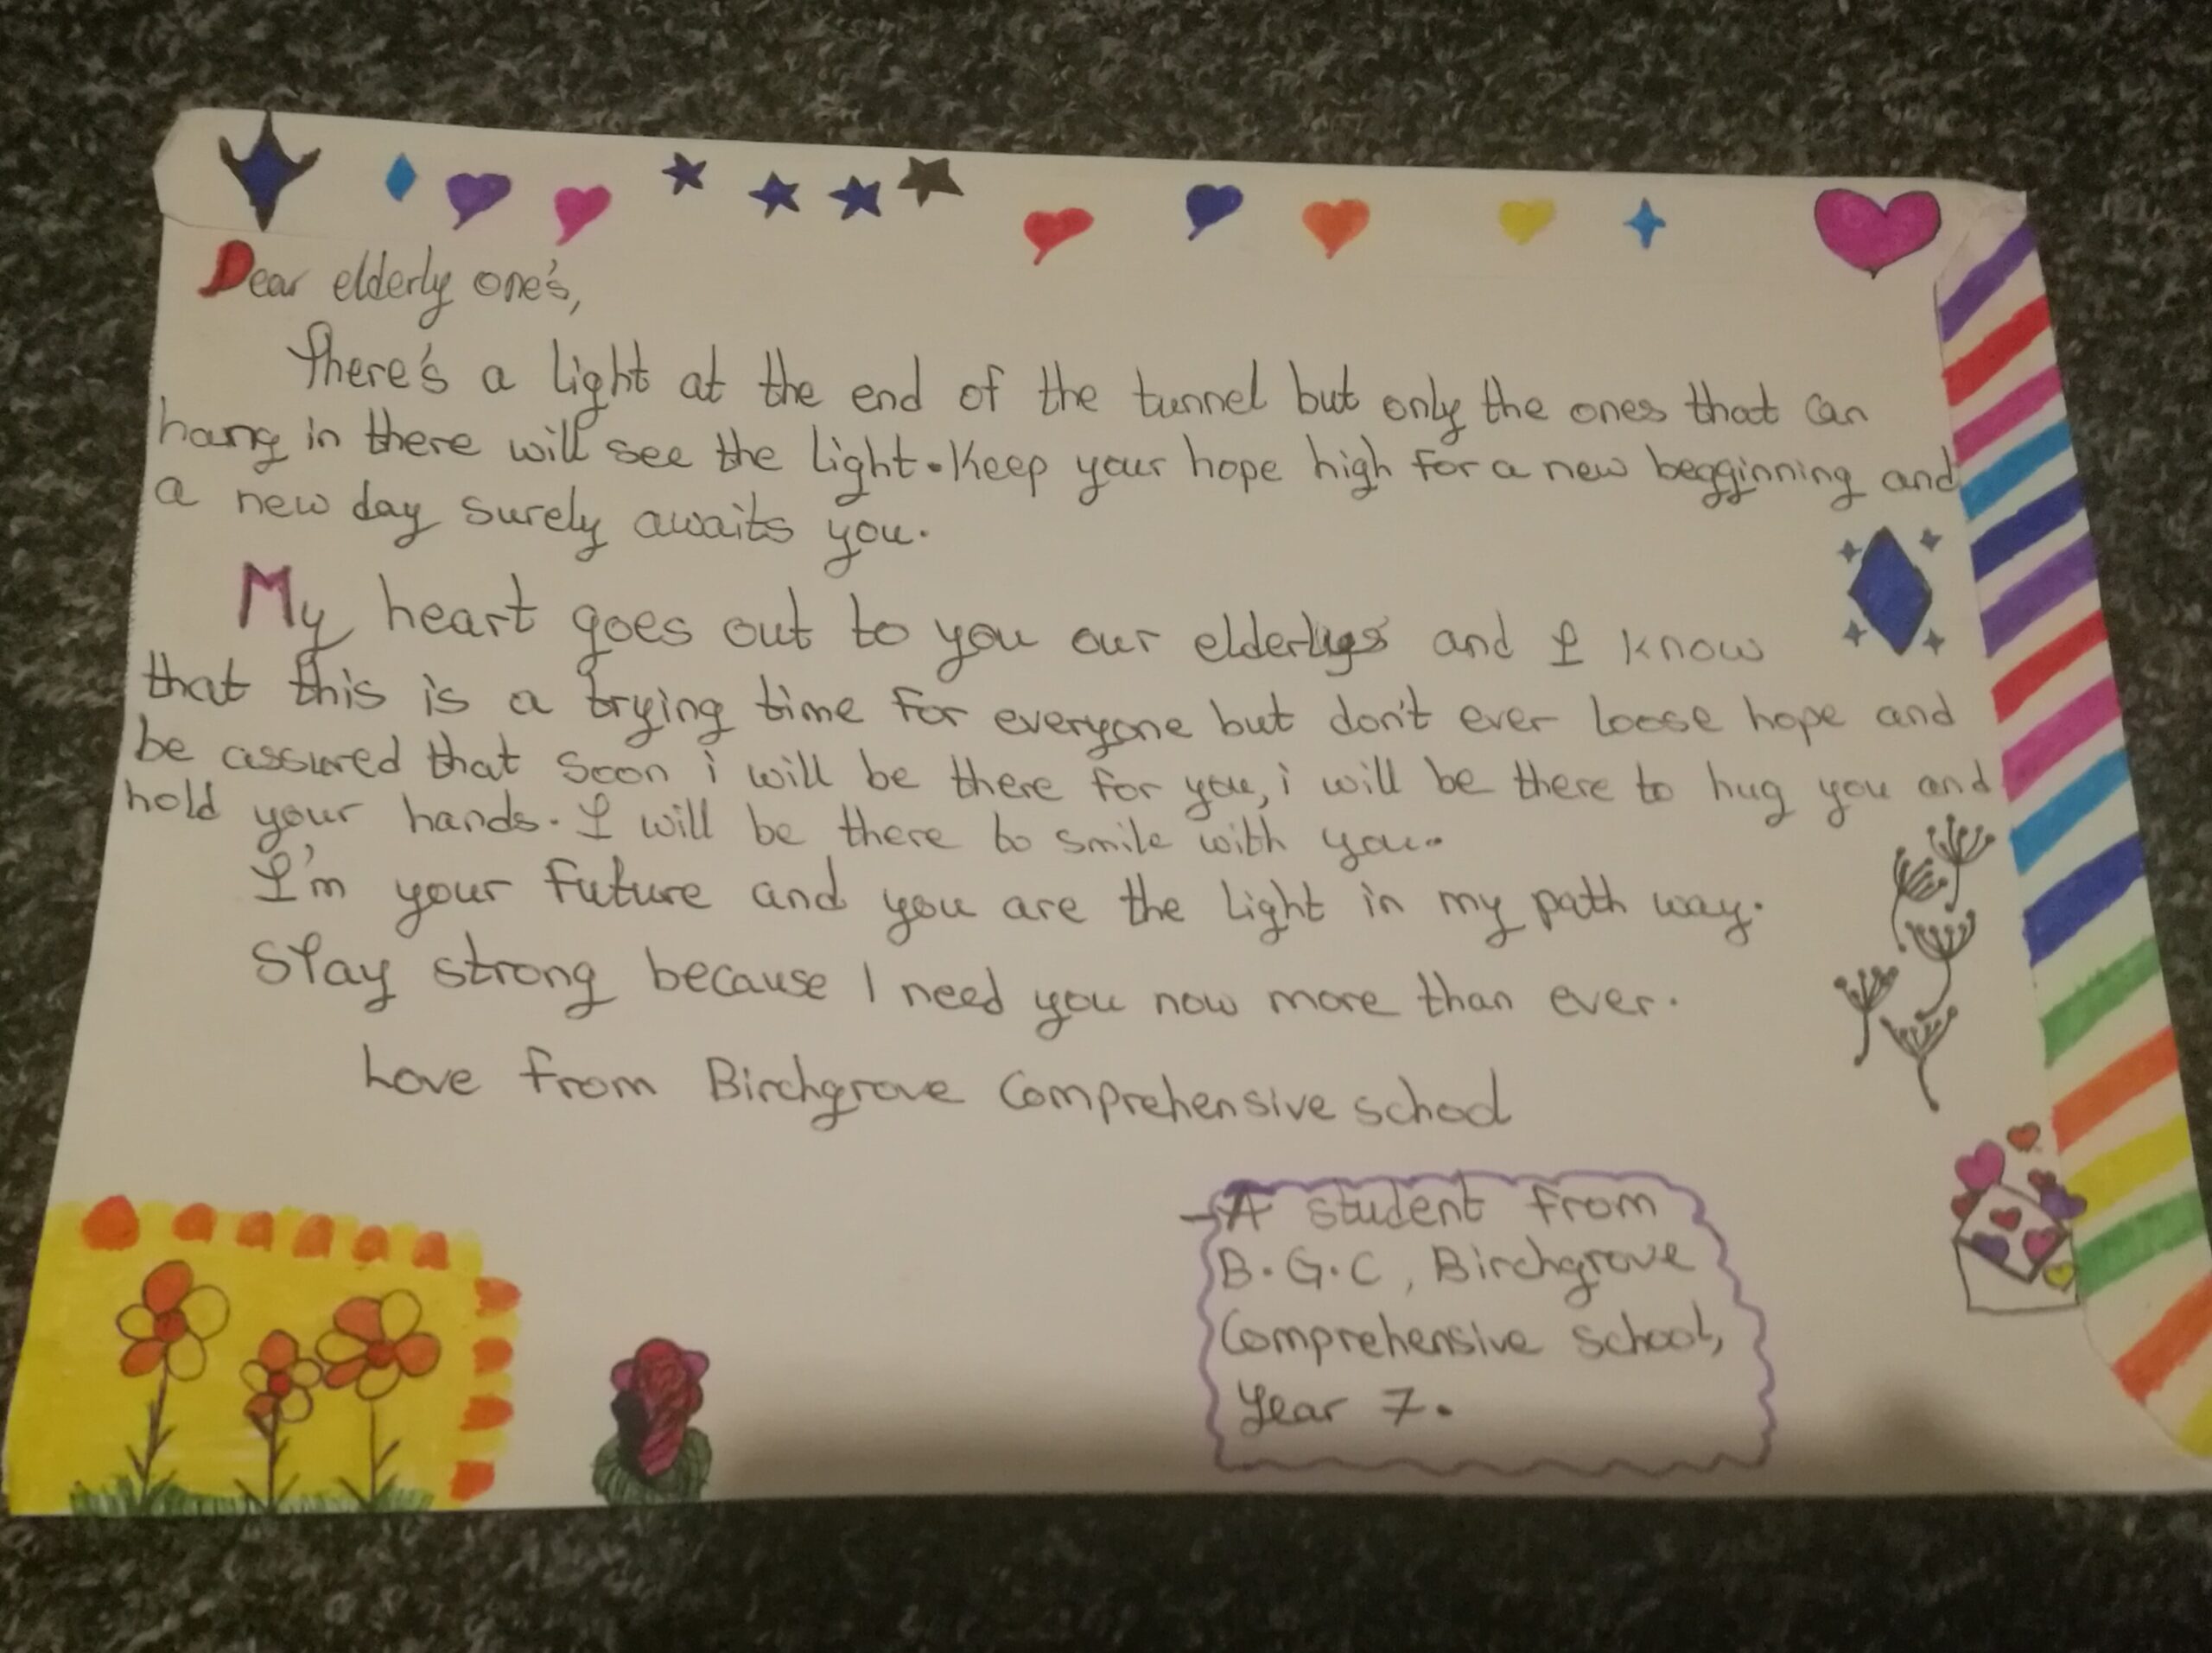 Dear elderly one's,
There's a light at the end of the tunnel but only the ones that can
hang in there will see the light. Keep your hope high for a new begginning and
a new day surely awaits you.
My heart goes out to you our elderlys and I know
that this is a trying time for everyone but don't ever loose hope and
be assured that soon i will be there for you, i will be there to hug you and
hold your hands. I will be there to smile with you.
I'm your future and you are the light in my path way.
Stay strong because I need you now more than ever.
Love from Birchgrove Comprehensive school
-A student from
B.G.C, Birchgrove
Comprehensive school,
Year 7.